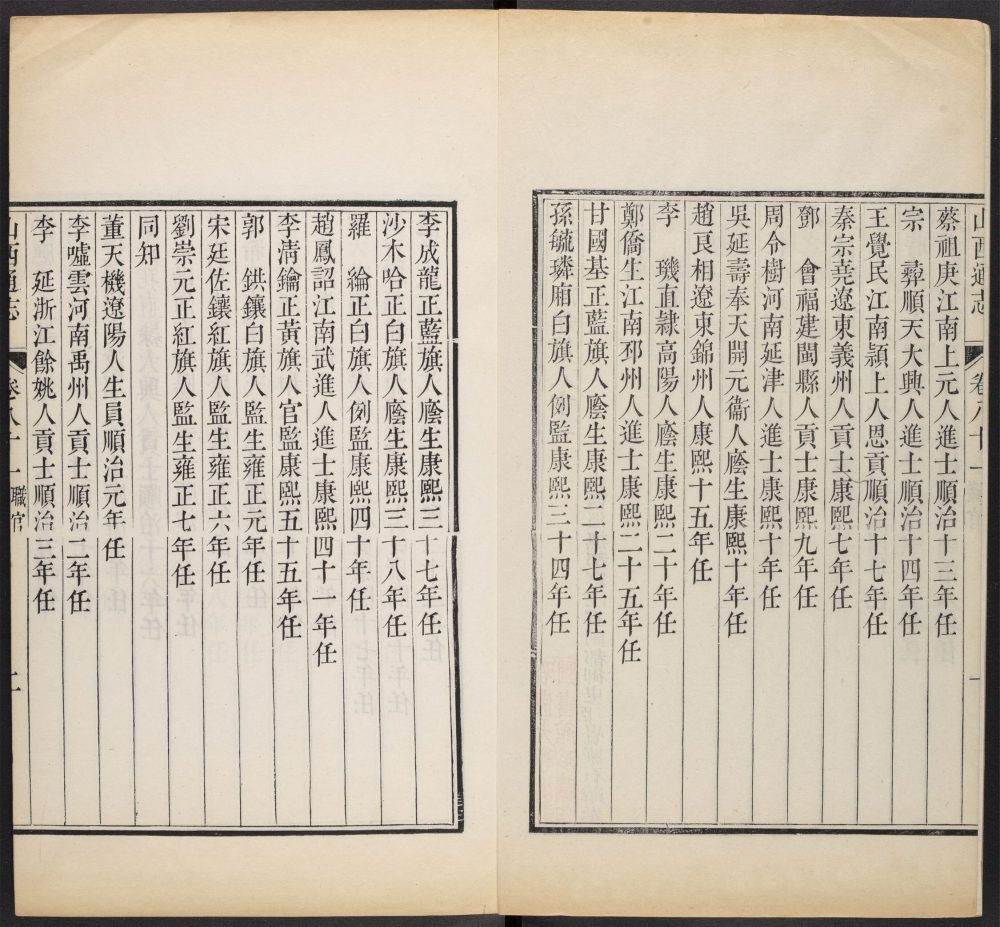 山西通志 卷八十一
蔡祖庚江南上元人進士順治十三年任
宗 彜順天大興人進士順治十四年任
王覺民江南潁上人恩貢順治十七年任
秦宗堯遼東義州人貢士康熙七年任
鄧 會福建閩縣人貢士康熙九年任
周令樹河南延津人進士康熙十年任
吳延壽奉天開元衞人廕生康熙十年任
趙良相遼東錦州人康熙十五年任
李 璣直隸高陽人廕生康熙二十年任
鄭僑生江南邳州人進士康熙二十五年任
甘國基正藍旗人廕生康熙二十七年任
孫毓璘廂白旗人例監康熙三十四年任
李成龍正藍旗人廕生康熙三十七年任
沙木哈正白旗人廕生康熙三十八年任
羅 綸正白旗人例監康熙四十年任
趙鳳詔江南武進人進士康熙四十一年任
李淸鑰正黃旗人官監康熙五十五年任
郭 鉷鑲白旗人監生雍正元年任
宋廷佐鑲紅旗人監生雍正六年任
劉崇元正紅旗人監生雍正七年任
同知
董天機遼陽人生員順治元年任
李噓雲河南禹州人貢士順治二年任
李 延浙江餘姚人貢士順治三年任
山西通志 卷八十一 職官 二